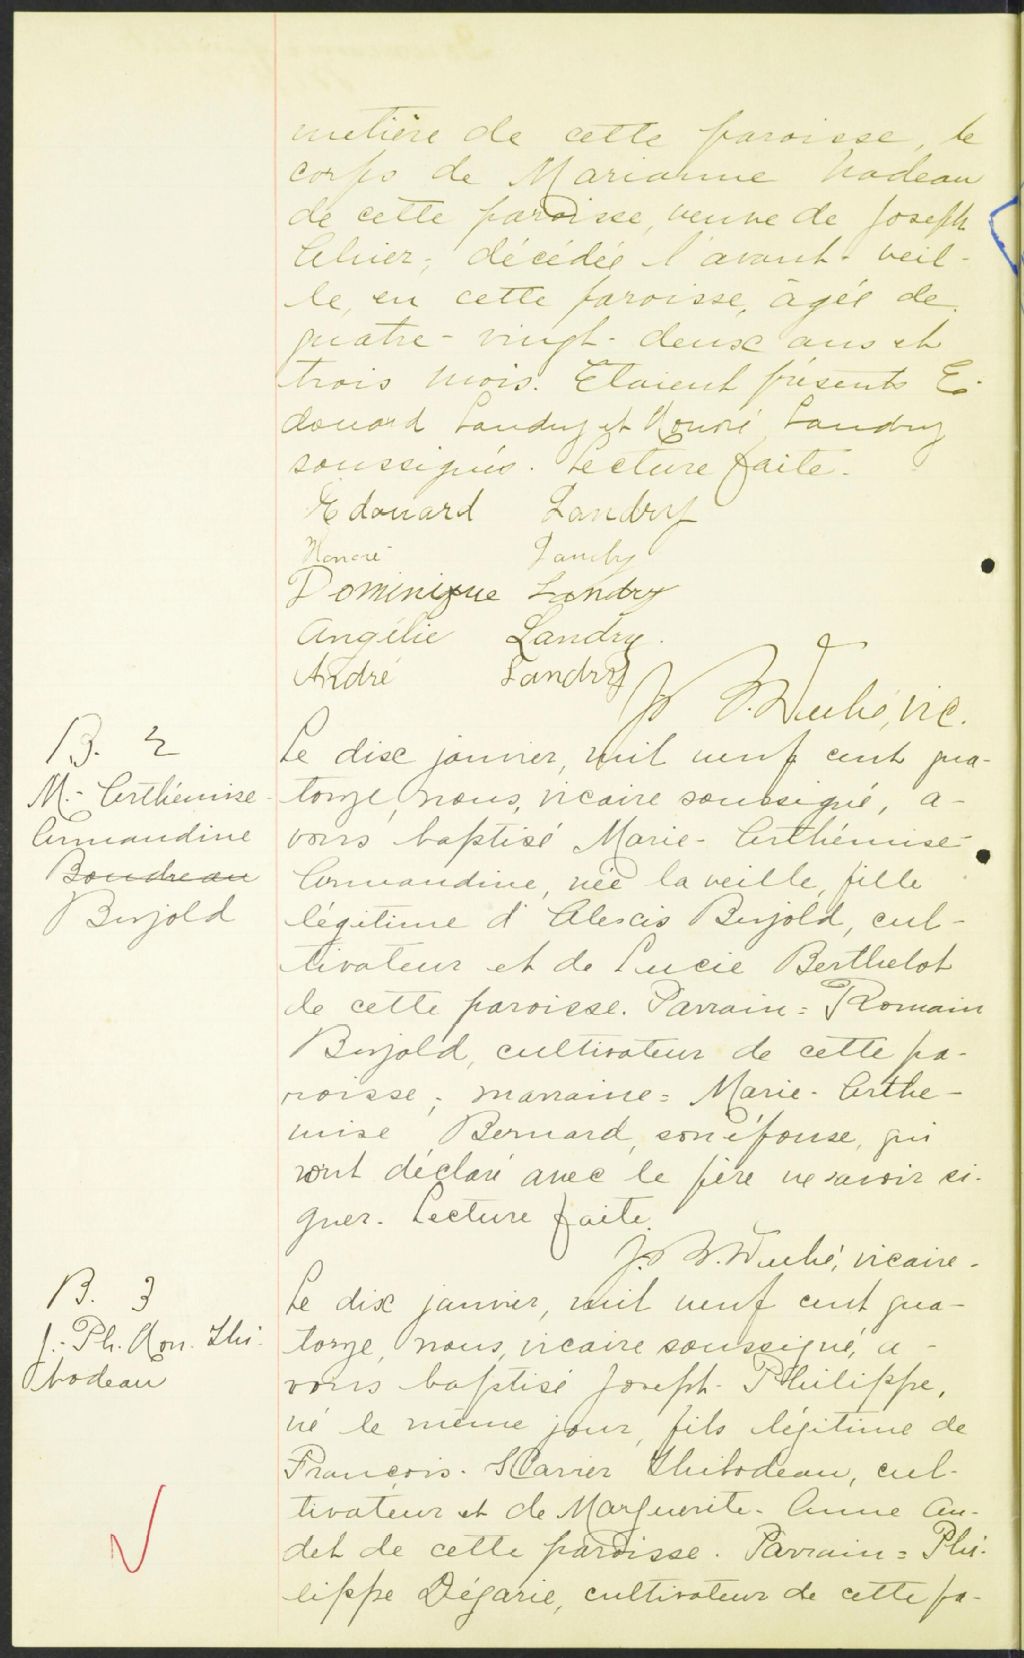 metière de cette paroisse, le
corps de Marianne Nadeau
de cette paroisse, veuve de Joseph
décédée l'avant-veil-
le, en cette paroisse, âgée de
quatre-vingt-deux ans et
trois mois. Etaient présents E-
douard Landry et Honoré Landry
soussignés. Lecture faite.
Edouard Landry
Honoré Landry
Dominique Landry
Angélie Landry.
André Landry
vic.
B. 2
M.-Arthémise-
Armandine
Boudreau
Bujold
Le dix janvier, mil neuf cent qua-
torze, nous, vicaire soussigné, a-
vons baptisé Marie-Arthémise-
Armandine, née la veille, fille
légitime d'Alexis Bujold, cul-
tivateur et de Lucie Berthelot
de cette paroisse. Parrain = Romain
Bujold, cultivateur de cette pa-
roisse; marraine = Marie-Arthé-
mise Bernard, son épouse, qui
ont déclaré avec le père ne savoir si-
gner. Lecture faite.
vicaire.
B. 3
J.-Ph. Hon. Thi-
bodeau
Le dix janvier, mil neuf cent qua-
torze, nous, vicaire soussigné, a-
vons baptisé Joseph-Philippe,
né le même jour, fils légitime de
François-Xavier Thibodeau, cul-
tivateur et de Marguerite-Anne Au-
det de cette paroisse. Parrain = Phi-
lippe Dégarie, cultivateur de cette pa-